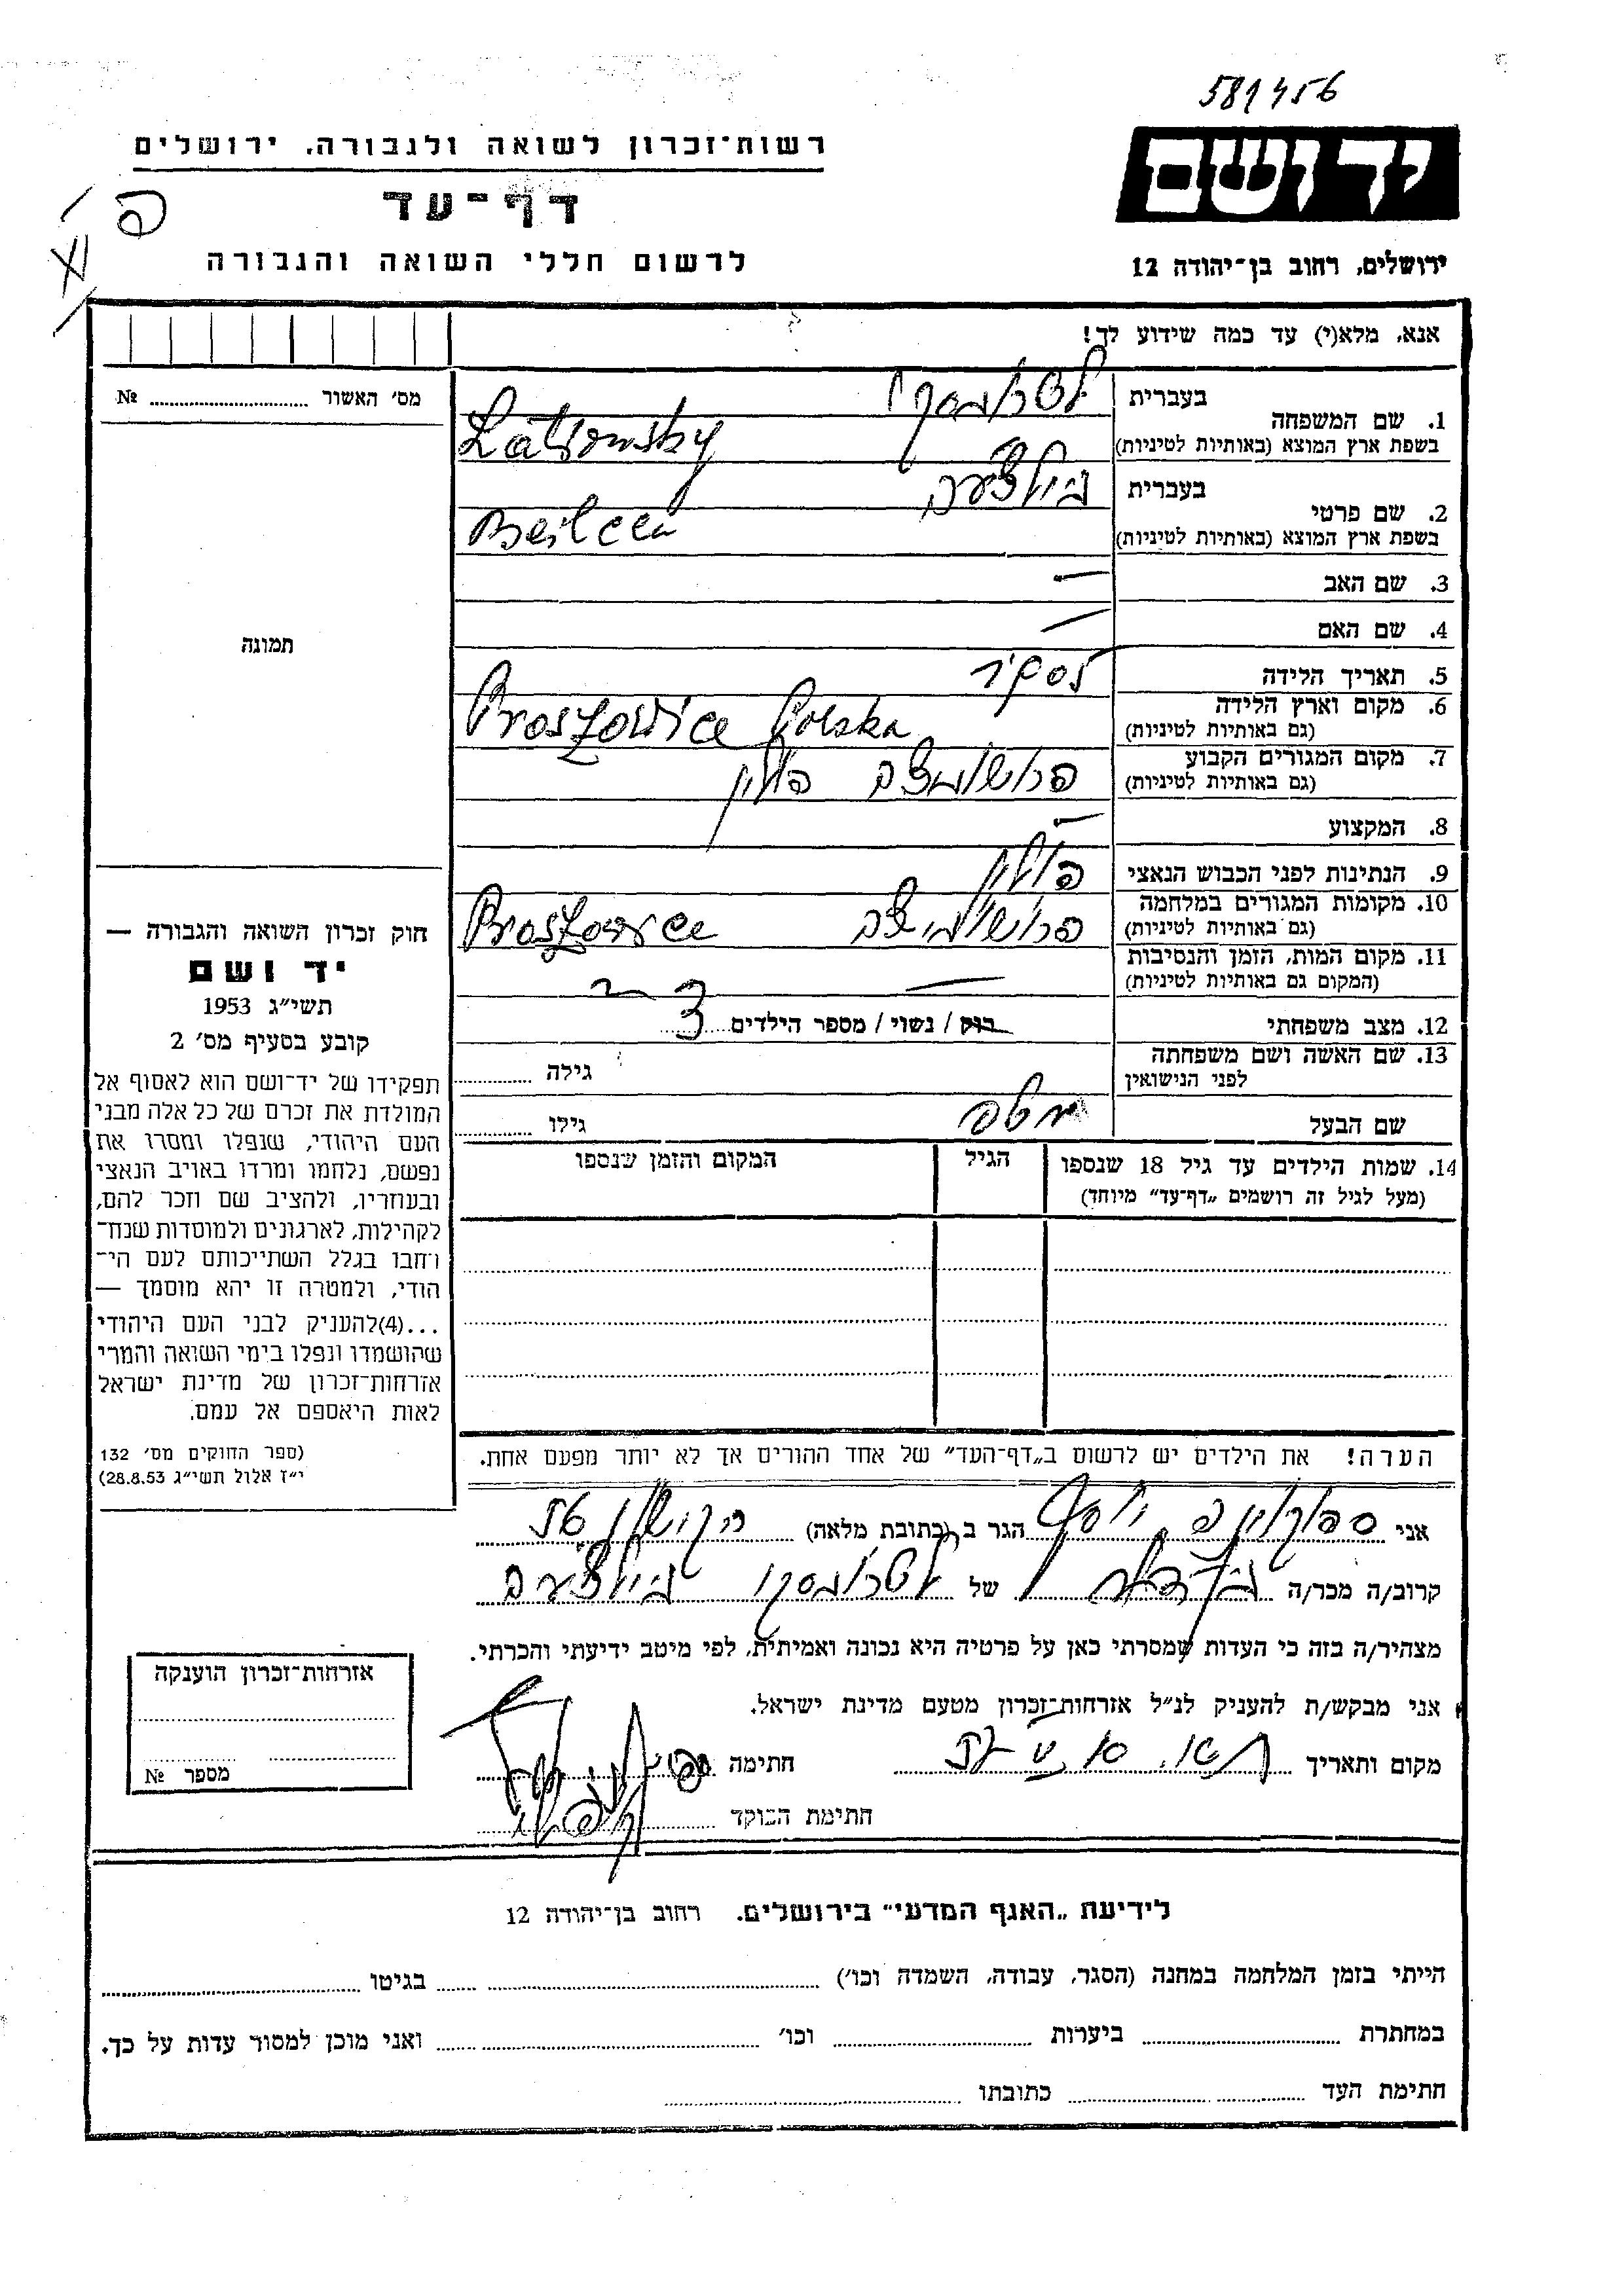 581456
יד ושם
רשות־זכרון לשואה ולגבורה, ירושלים
דף־עד
לרשום חללי השואה והגבורה
ירושלים, רחוב בן־יהודה 12
אנא, מלא(י) עד כמה שידוע לך!
מס׳ האשור № ........
תמונה
חוק זכרון השואה והגבורה —
יד ושם
תשי״ג 1953
קובע בסעיף מס׳ 2
תפקידו של יד־ושם הוא לאסוף אל
המולדת את זכרם של כל אלה מבני
העם היהודי, שנפלו ומסרו את
נפשם, נלחמו ומרדו באויב הנאצי
ובעוזריו, ולהציב שם וזכר להם,
לקהילות, לארגונים ולמוסדות שנח־
רבו בגלל השתייכותם לעם הי־
הודי, ולמטרה זו יהא מוסמך —
...(4)להעניק לבני העם היהודי
שהושמדו ונפלו בימי השואה והמרי
אזרחות־זכרון של מדינת ישראל
לאות היאספם אל עמם.
(ספר החוקים מס׳ 132
י״ז אלול תשי״ג 28.8.53)
בעברית
1. שם המשפחה
בשפת ארץ המוצא (באותיות לטיניות) Latromsky
בעברית
2. שם פרטי
בשפת ארץ המוצא (באותיות לטיניות) Beilcea
3. שם האב —
4. שם האם —
5. תאריך הלידה
6. מקום וארץ הלידה Proszowice Polska
(גם באותיות לטיניות)
7. מקום המגורים הקבוע פרושוביצה פולין
(גם באותיות לטיניות)
8. המקצוע —
9. הנתינות לפני הכבוש הנאצי פולין
10. מקומות המגורים במלחמה פרושוביצה Proszowice
(גם באותיות לטיניות)
11. מקום המות, הזמן והנסיבות —
(המקום גם באותיות לטיניות)
12. מצב משפחתי רוק / נשוי / מספר הילדים 3
13. שם האשה ושם משפחתה גילה ........
לפני הנישואין
שם הבעל גילו ........
14. שמות הילדים עד גיל 18 שנספו הגיל המקום והזמן שנספו
(מעל לגיל זה רושמים „דף־עד״ מיוחד)
הערה! את הילדים יש לרשום ב„דף־העד״ של אחד ההורים אך לא יותר מפעם אחת.
אני יוסף הגר ב (כתובת מלאה)
קרוב/ה מכר/ה של לטרומסקי
מצהיר/ה בזה כי העדות שמסרתי כאן על פרטיה היא נכונה ואמיתית, לפי מיטב ידיעתי והכרתי.
אני מבקש/ת להעניק לנ״ל אזרחות־זכרון מטעם מדינת ישראל.
מקום ותאריך חתימה
חתימת הפוקד
אזרחות־זכרון הוענקה
מספר №
לידיעת „האגף המדעי״ בירושלים, רחוב בן־יהודה 12
הייתי בזמן המלחמה במחנה (הסגר, עבודה, השמדה וכו׳) ........ בגיטו ........
במחתרת ........ ביערות ........ וכו׳ ........ ואני מוכן למסור עדות על כך.
חתימת העד ........ כתובתו ........